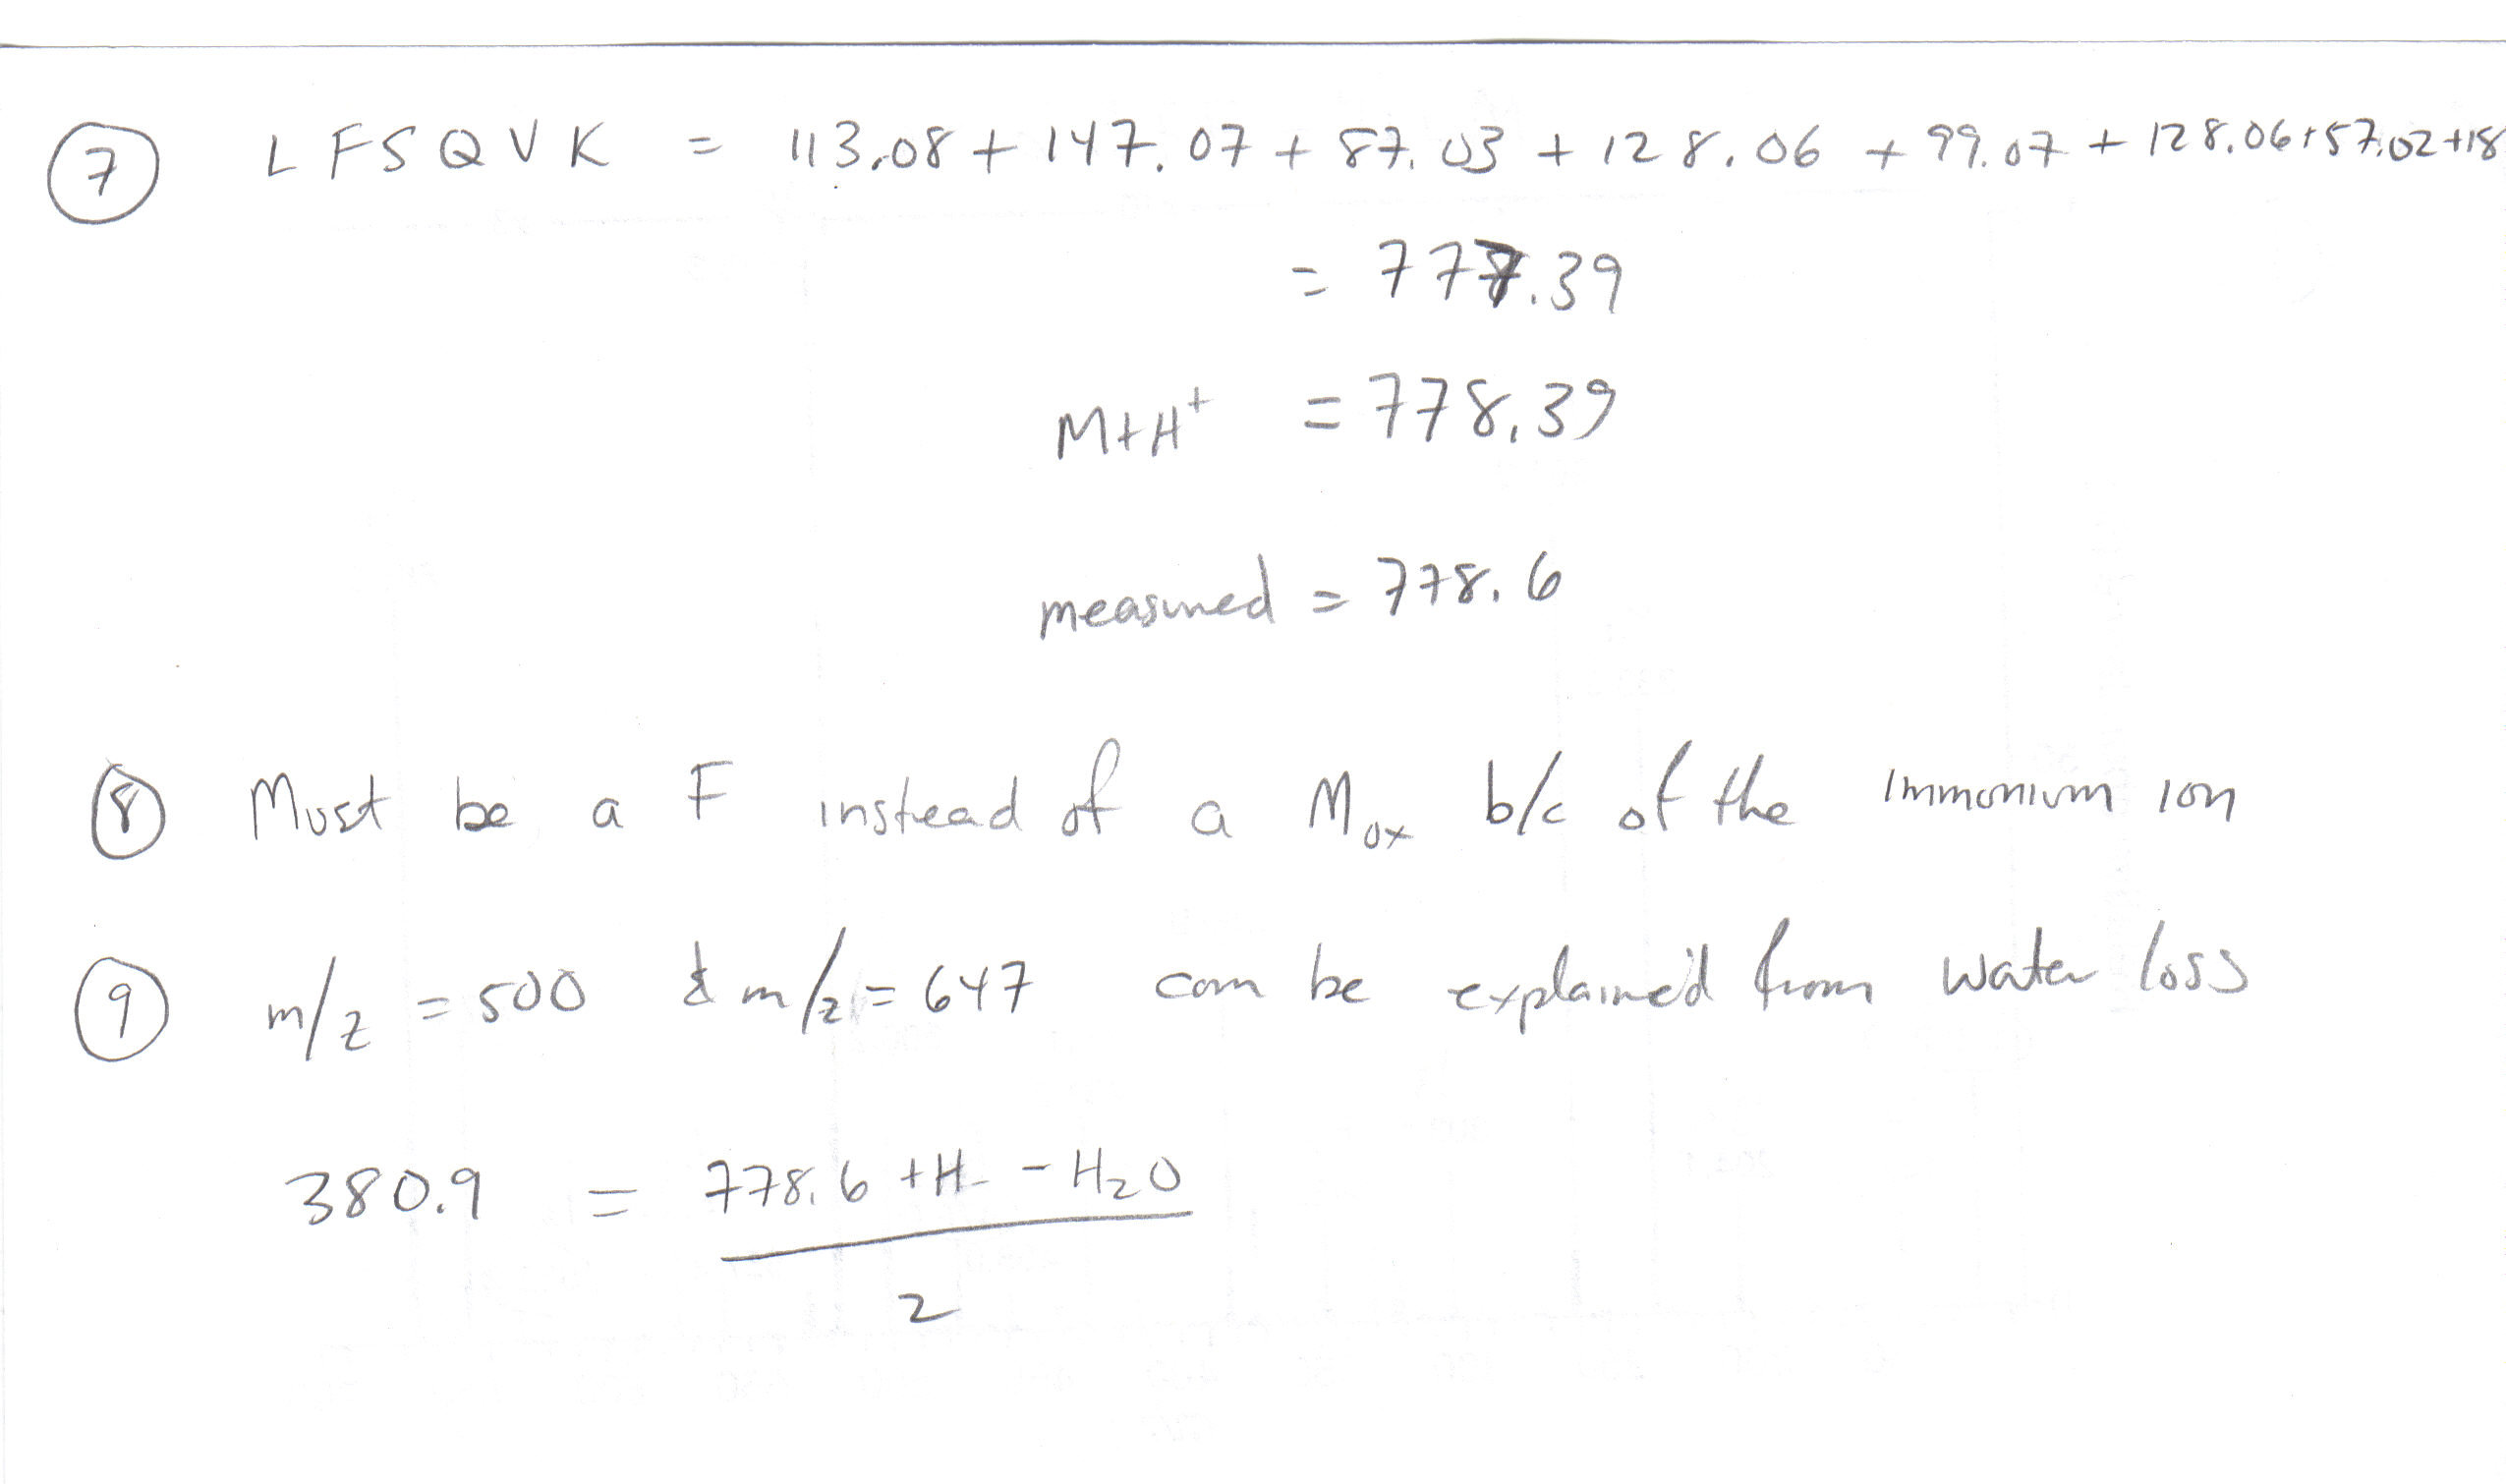 7 LFSQVK = 113.08 + 147.07 + 87.03 + 128.06 + 99.07 + 128.06+57.02+18
= 777.39
M+H+ = 778.39
measured = 778.6
8 Must be a F instead of a Mox b/c of the Immonium ion
9 m/z = 500 & m/z = 647 can be explained from water loss
380.9 = 778.6 +H - H2O
2